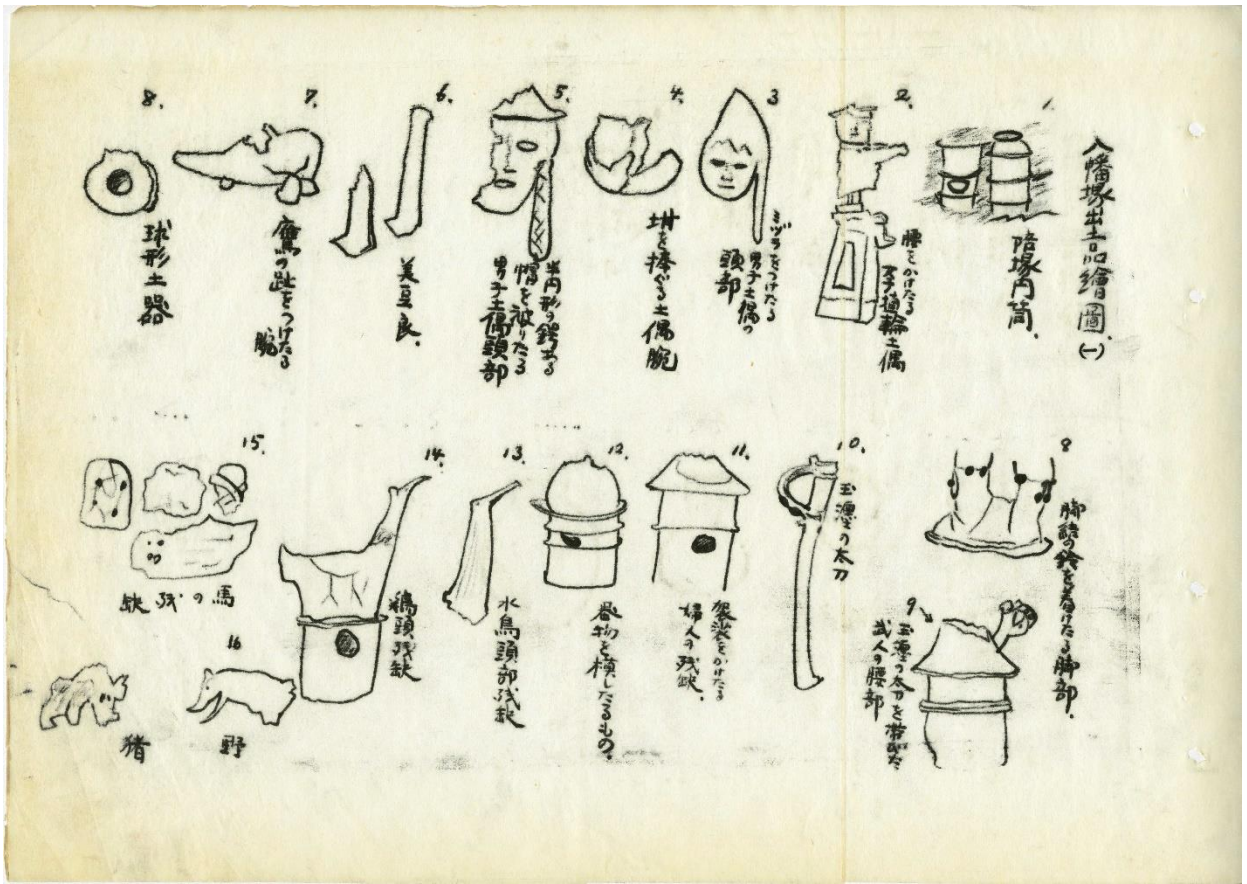 八幡塚出土品繪圖.(一)
1.
陪塚円筒.
2.
腰をかけたる
男子埴輪土偶
3
ミヅラをつけたる
男子土偶の
頭部
4.
坩を捧ぐる土偶腕
5.
半円形の鍔ある
帽を被りたる
男子土偶頭部
6.
美豆良.
7.
鷹の趾をつけたる
腕
8.
球形土器
8
脚結の鈴を着けたる脚部.
9
玉纒の太刀を帯びた
武人の腰部
10.
玉纒の太刀
11.
袈裟をかけたる
婦人の残缺.
12.
器物を模したるもの.
13.
水鳥頭部残缺
14.
鶏頭残缺
15.
馬の残缺
16
野猪